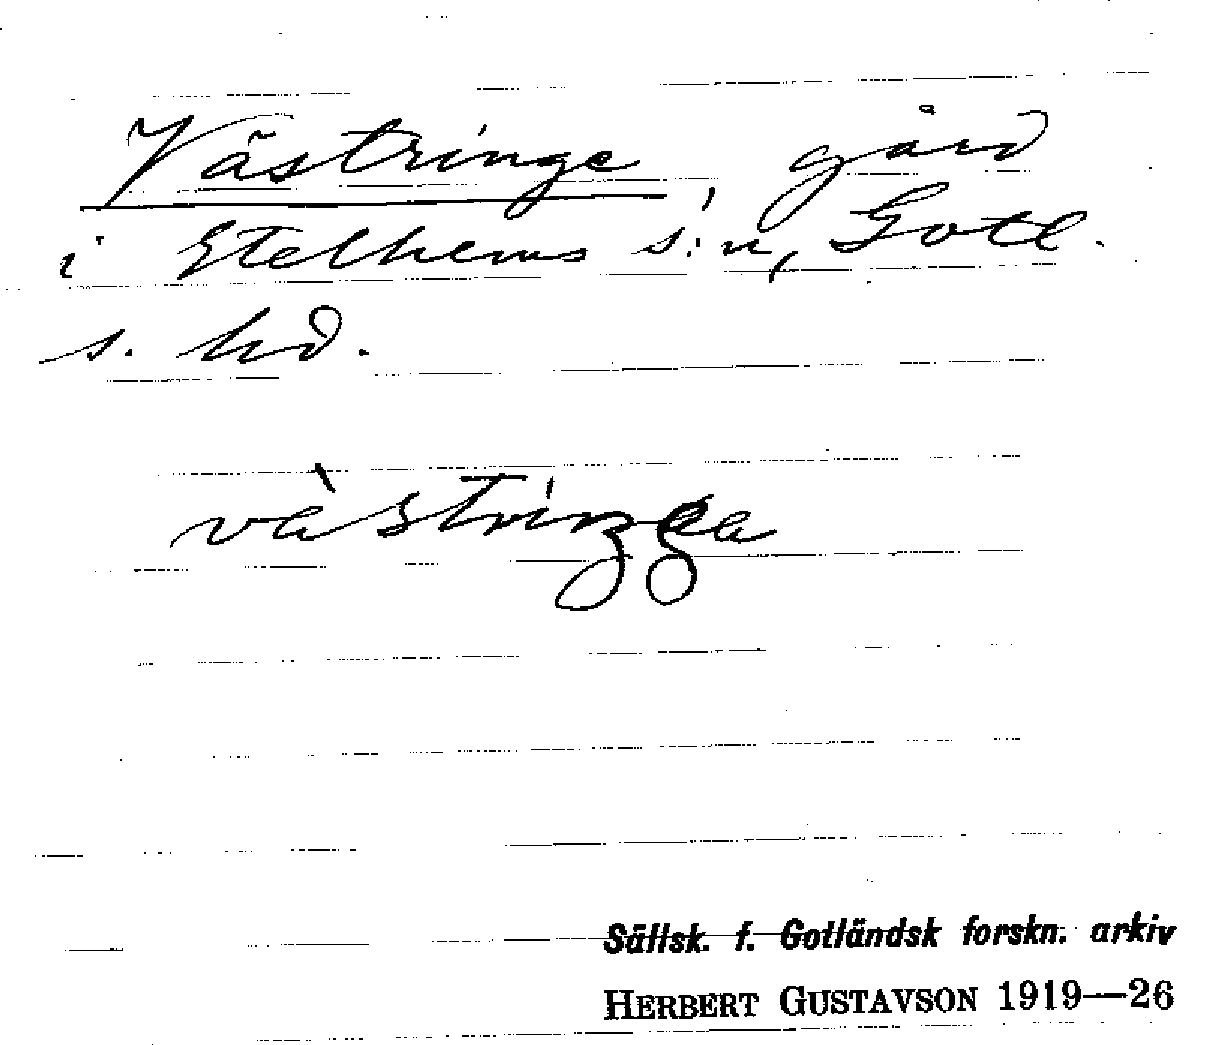 Västringe, gård
i Etelhems s:n, Gotl.
s. hd.
västringga
Sällsk. f. Gotländsk forskn. arkiv
HERBERT GUSTAVSON 1919—26